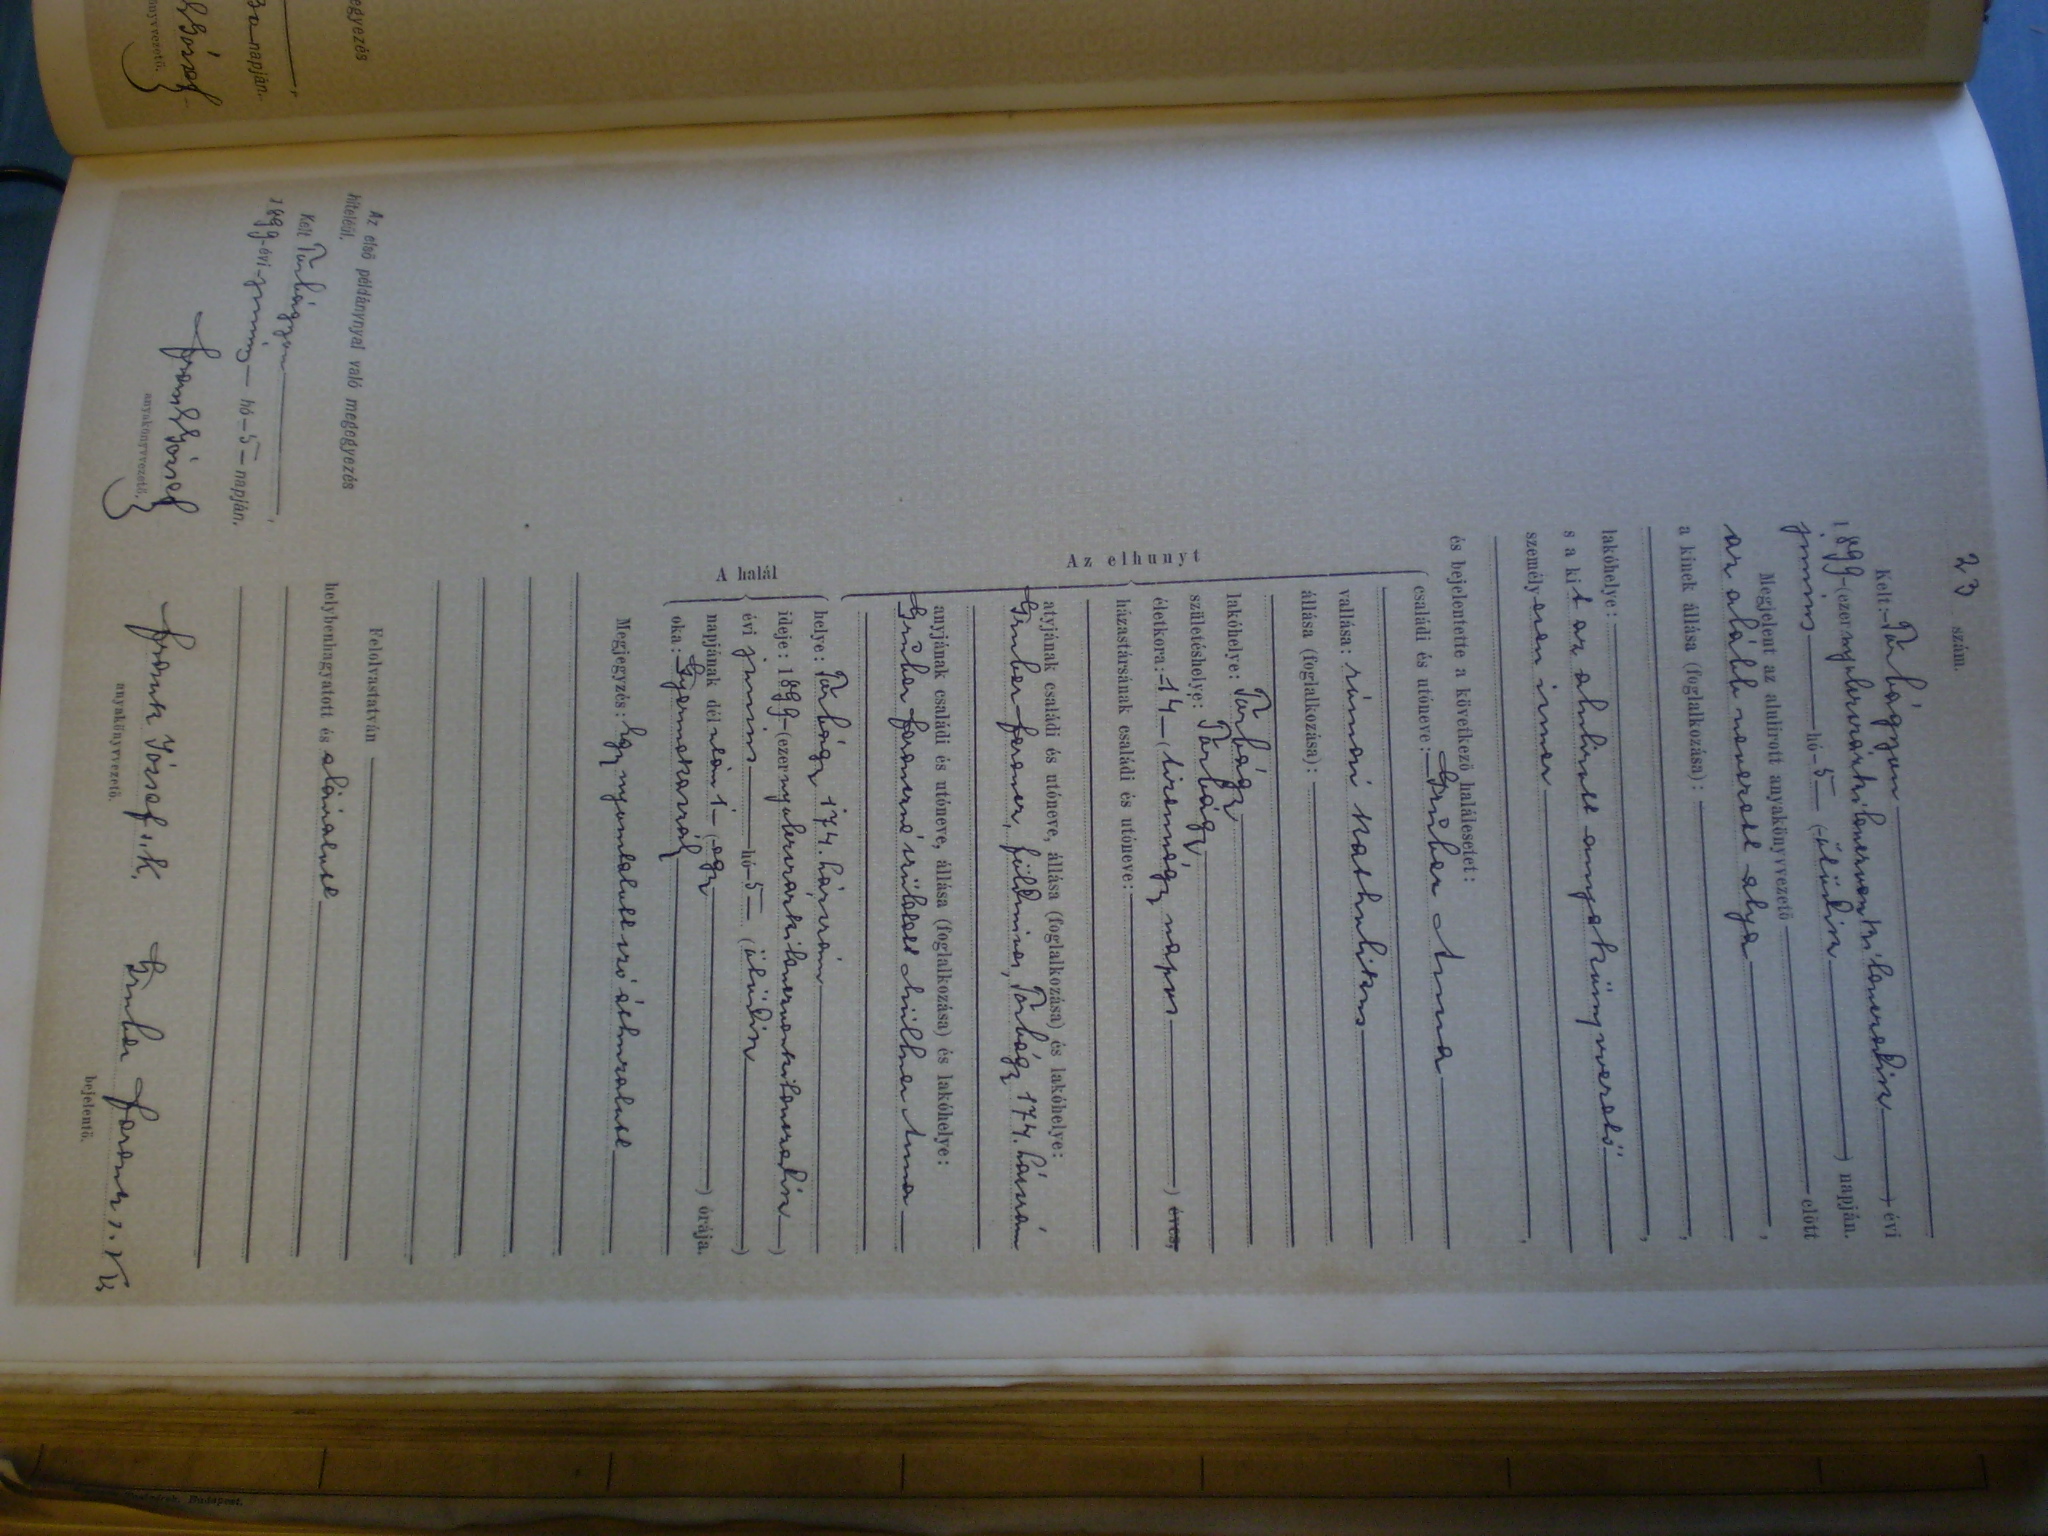 egyezés
napján.
23 szám.
Kelt: Törbágyon
1899 (ezernyolczszázkilenczvenkilenczedik) évi
június hó 5 (ötödik) napján.
Megjelent az alulirott anyakönyvvezető előtt
az alább nevezett atya,
a kinek állása (foglalkozása):
lakóhelye:
s a kit az alulirott anyakönyvvezető
személyesen ismer,
és bejelentette a következő halálesetet:
Az elhunyt
családi és utóneve: Gruber Anna
vallása: római katholikus
állása (foglalkozása):
lakóhelye: Törbágy
születéshelye: Törbágy
életkora: 14 (tizennégy napos) éves,
házastársának családi és utóneve:
atyjának családi és utóneve, állása (foglalkozása) és lakóhelye:
Gruber Ferencz, földmíves, Törbágy 174. házszám
anyjának családi és utóneve, állása (foglalkozása) és lakóhelye:
Gruber Ferenczné született Anna
A halál
helye: Törbágy 174. házszám
ideje: 1899 (ezernyolczszázkilenczvenkilenczedik)
évi június hó 5 (ötödik)
napjának dél után 1 (egy) órája.
oka: Gyermekaszály
Megjegyzés: Egy nyomtatott szó áthúzatott
Felolvastatván
helybenhagyatott és aláíratott
Frank József s. k.
anyakönyvvezető.
Gruber Ferencz s. k.
bejelentő.
Az első példánynyal való megegyezés
hiteléül.
Kelt Törbágyon,
1899 évi június hó 5 napján.
Frank József
anyakönyvvezető.